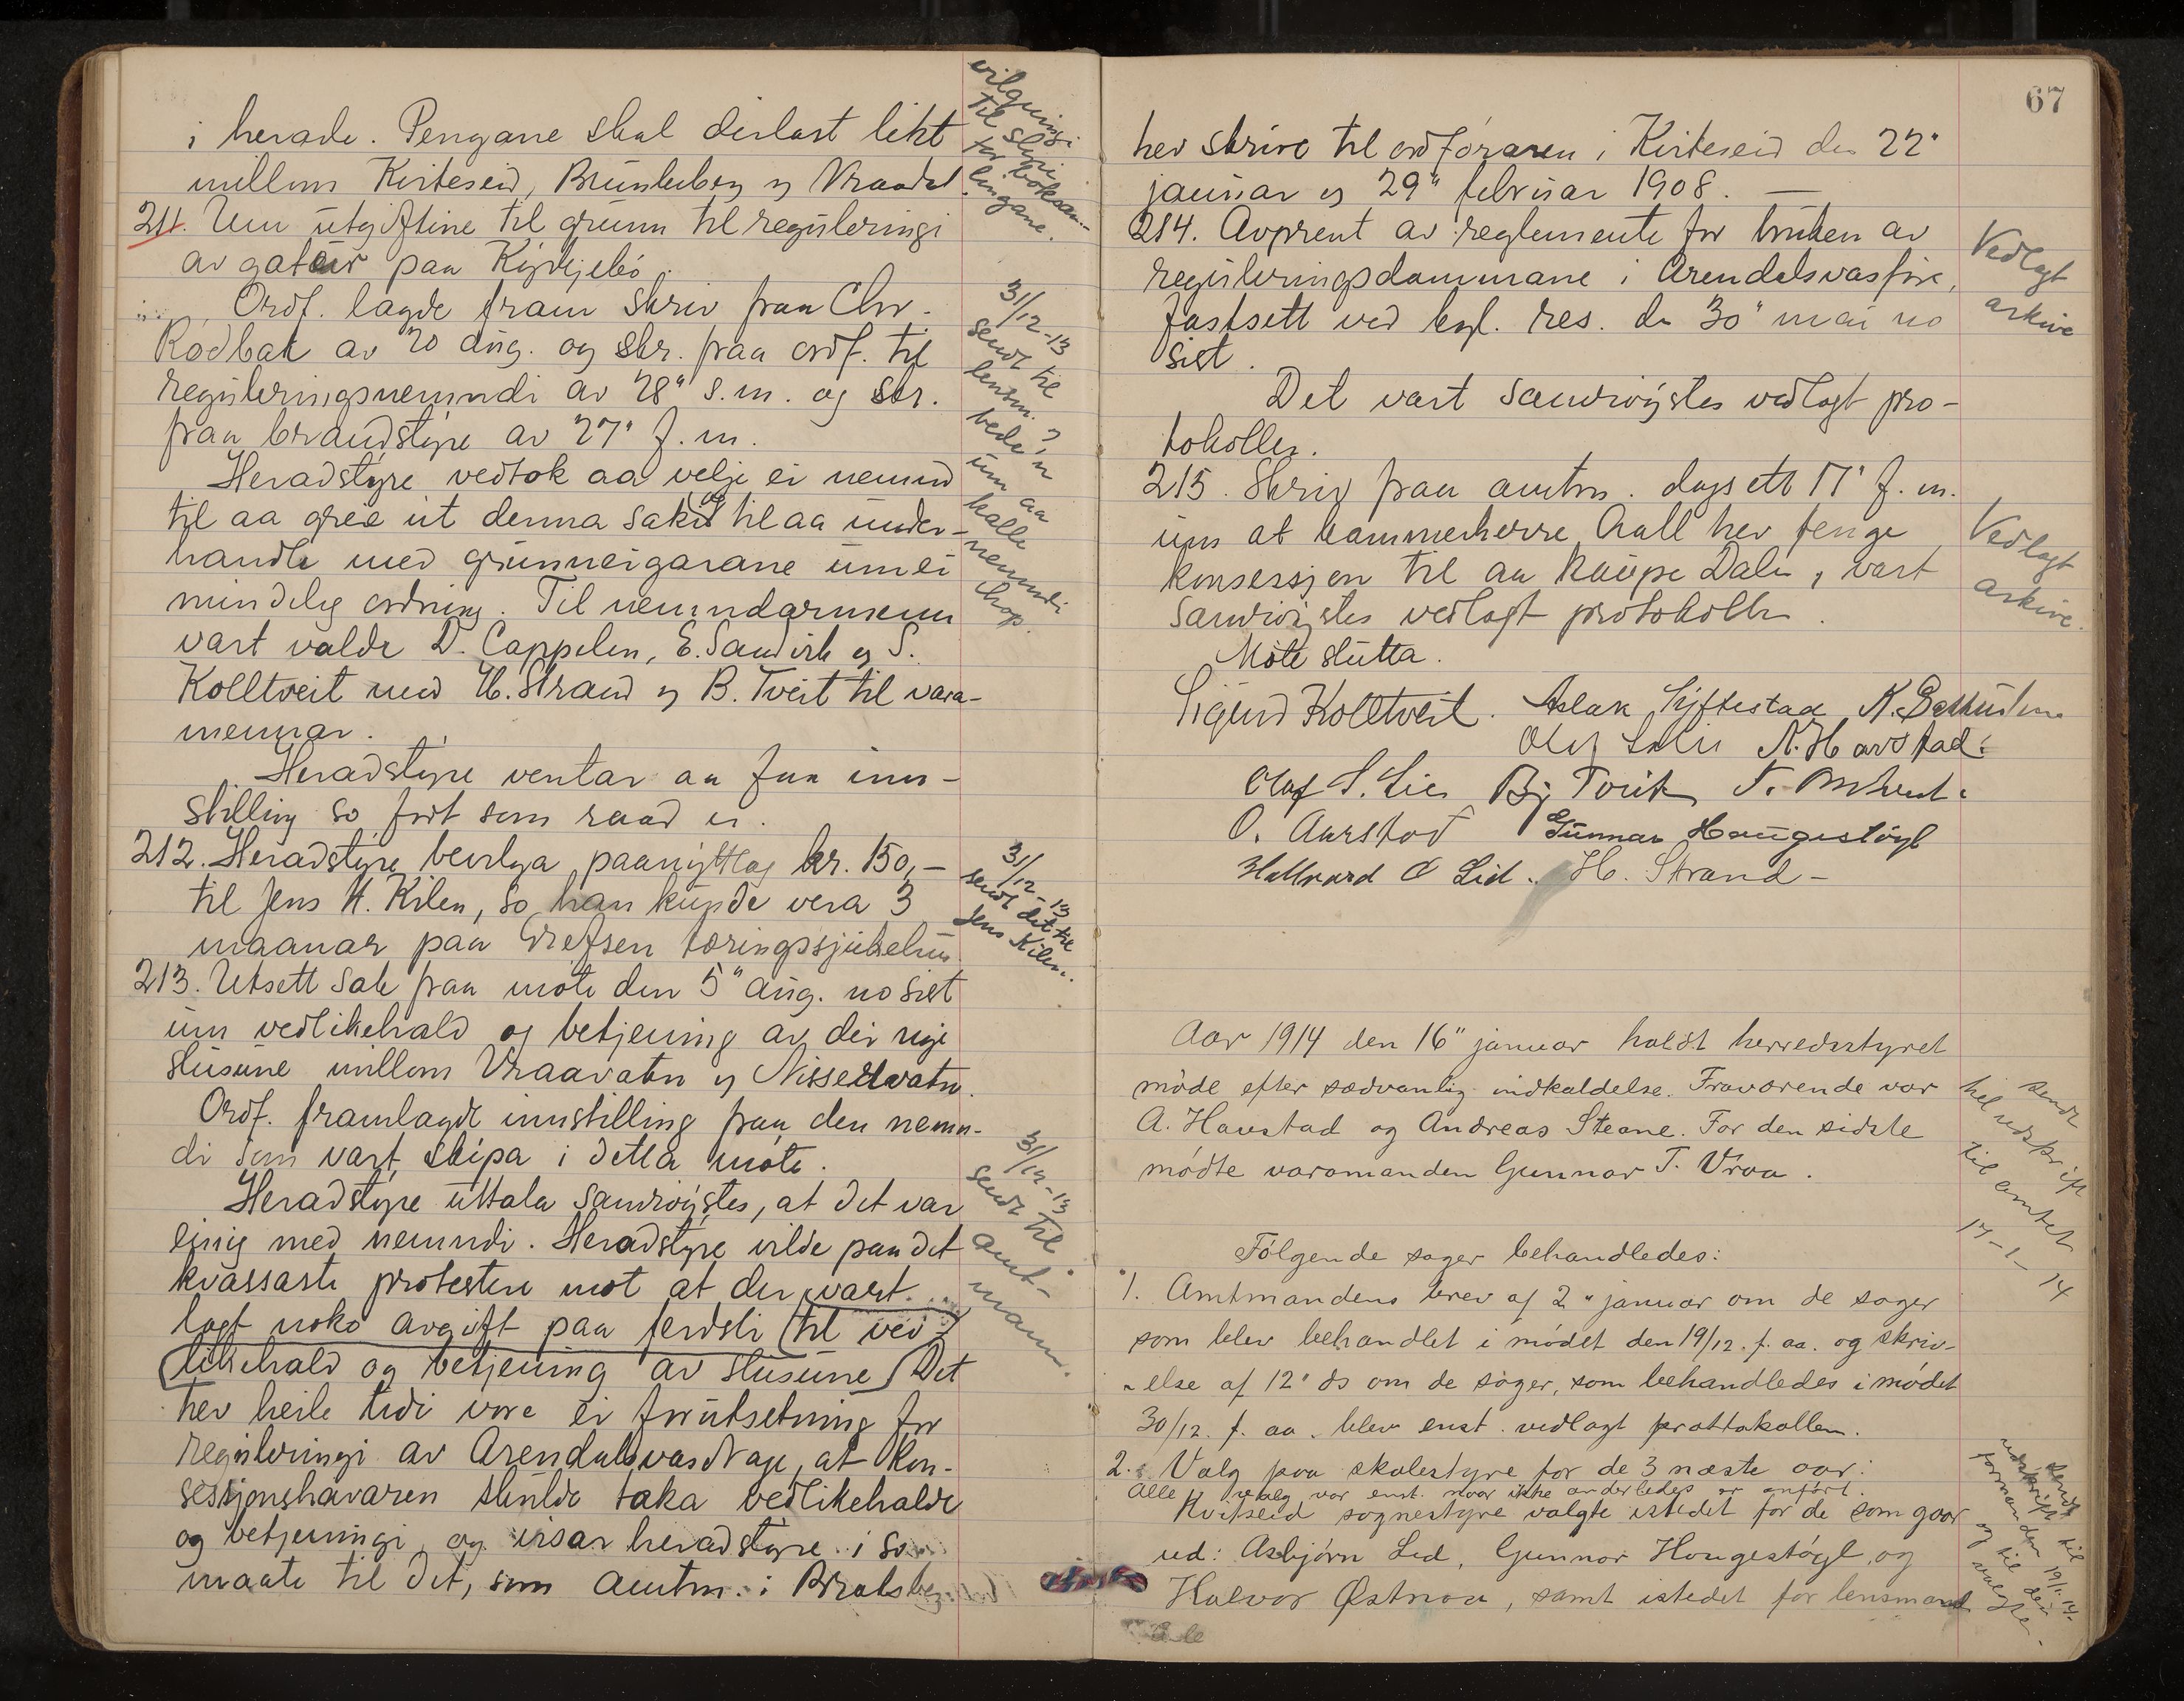 i herade. Pengane skal deilast likt
millom Kviteseid, Brunkeberg og Vraadal.
vilgungi
til styri
for boksam-
lingane.
211. Um utgiftine til grunn til reguleringi
av gatour paa Kyrkjebø.
Ordf. lagde fram skriv fraa Chr.
Rodbak av 20 aug. og skr. fraa ordf. til
reguleringsnemndi av 28" s.m. og skr.
fraa brandstyre av 27' f.m.
Heradstyre vedtok aa velje ei nemnd
til aa greie ut denna saki og til aa under-
handle med grunneigarane um ei
mindeleg ordning. Til nemndarmenn
vart valde D. Cappelen, E. Sandvik og S.
Kolltveit med H. Strand og B. Tveit til vara-
mennar.
31/12-13
sendt til
lensm.
bede'n
um aa
kalle
nemndi
ihop.
Heradstyre ventar aa faa inn-
stilling so fort som raad er.
212. Heradstyre bevilga paanyttlag kr. 150,-
til Jens H. Kilen, so han kunde vera 3
maanar paa Grefsen tæringssjukehus.
31/12-13
sendt det til
Jens Kilen.
213. Utsett sak fraa møte den 5" aug. no sist
um vedlikehald og betjening av dei nye
slusune millom Vraavatn og Nisservatn.
Ordf. framlagde innstilling fraa den nemn-
di som vart skipa i detta møte.
Heradstyre uttala samrøystes, at det var
einig med nemndi. Heradstyre vilde paa det
kvassaste protestere mot at der vart
lagt noko avgift paa ferdsli til ved-
likehald og betjening av slusune. Det
hev heile tidi vore ei forutsetning for
reguleringi av Arendalsvasdrage, at kon-
sesjonshavaren skulde taka vedlikehalde
og betjeningi, og visar heradstyre i so
maate til det, som amtm. i Bratsberg
31/12-13
sendt til
amt-
mann.
67
hev skrive til ordføraren i Kviteseid den 22"
januar og 29" februar 1908. —
214. Avprent av reglemente for bruken av
reguleringsdammane i Arendalsvasføre,
fastsett ved kgl. res. den 30" mai no
sist.
Vedlagt
arkive
Det vart samrøystes vedlagt pro-
tokollen.
215. Skriv fraa amtm. dagsett 17' f.m.
um at kammerherre Aall hev fenge
konsessjon til aa kaupe Dalen, vart
samrøystes vedlagt protokollen.
Vedlagt
arkive.
Møte slutta.
Sigurd Kolltveit. Aslak Syftestad
Olaf Lie A. Havstad.
Olaf S. Lie Bj Tveit
O. Aarstad Gunnar Haugestøyl
Hallvard O Lid. H. Strand -
Aar 1914 den 16" januar holdt herredsstyret
møde efter sædvanlig indkaldelse. Fraværende var
A. Havstad og Andreas Steane. For den sidste
mødte varamanden Gunnar T. Vraa.
sendt
hel udskrift
til amtet
17-1-14
Følgende sager behandledes:
1. Amtmandens brev af 2" januar om de sager
som blev behandlet i mødet den 19/12. f. aa. og skriv-
else af 12" ds om de sager, som behandledes i mødet
30/12. f. aa. blev enst. vedlagt prottokollen.
2. Valg paa skolestyre for de 3 næste aar:
Alle valg var enst. naar ikke anderledes er anført.
Kvitseid sognestyre valgte istedet for de som gaar
ud: Asbjørn Lid, Gunnar Haugestøyl, og
Halvor Østmoa, samt istedet for lensmand
sendt
udskrift til
formanden 19/1-14
og til dei
valgte.